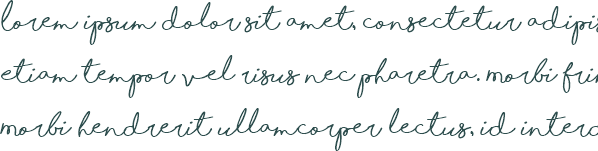 lorem ipsum dolor sit amet, consectetur adipis
etiam tempor vel risus nec pharetra. morbi frin
morbi hendrerit ullamcorper lectus, id interd